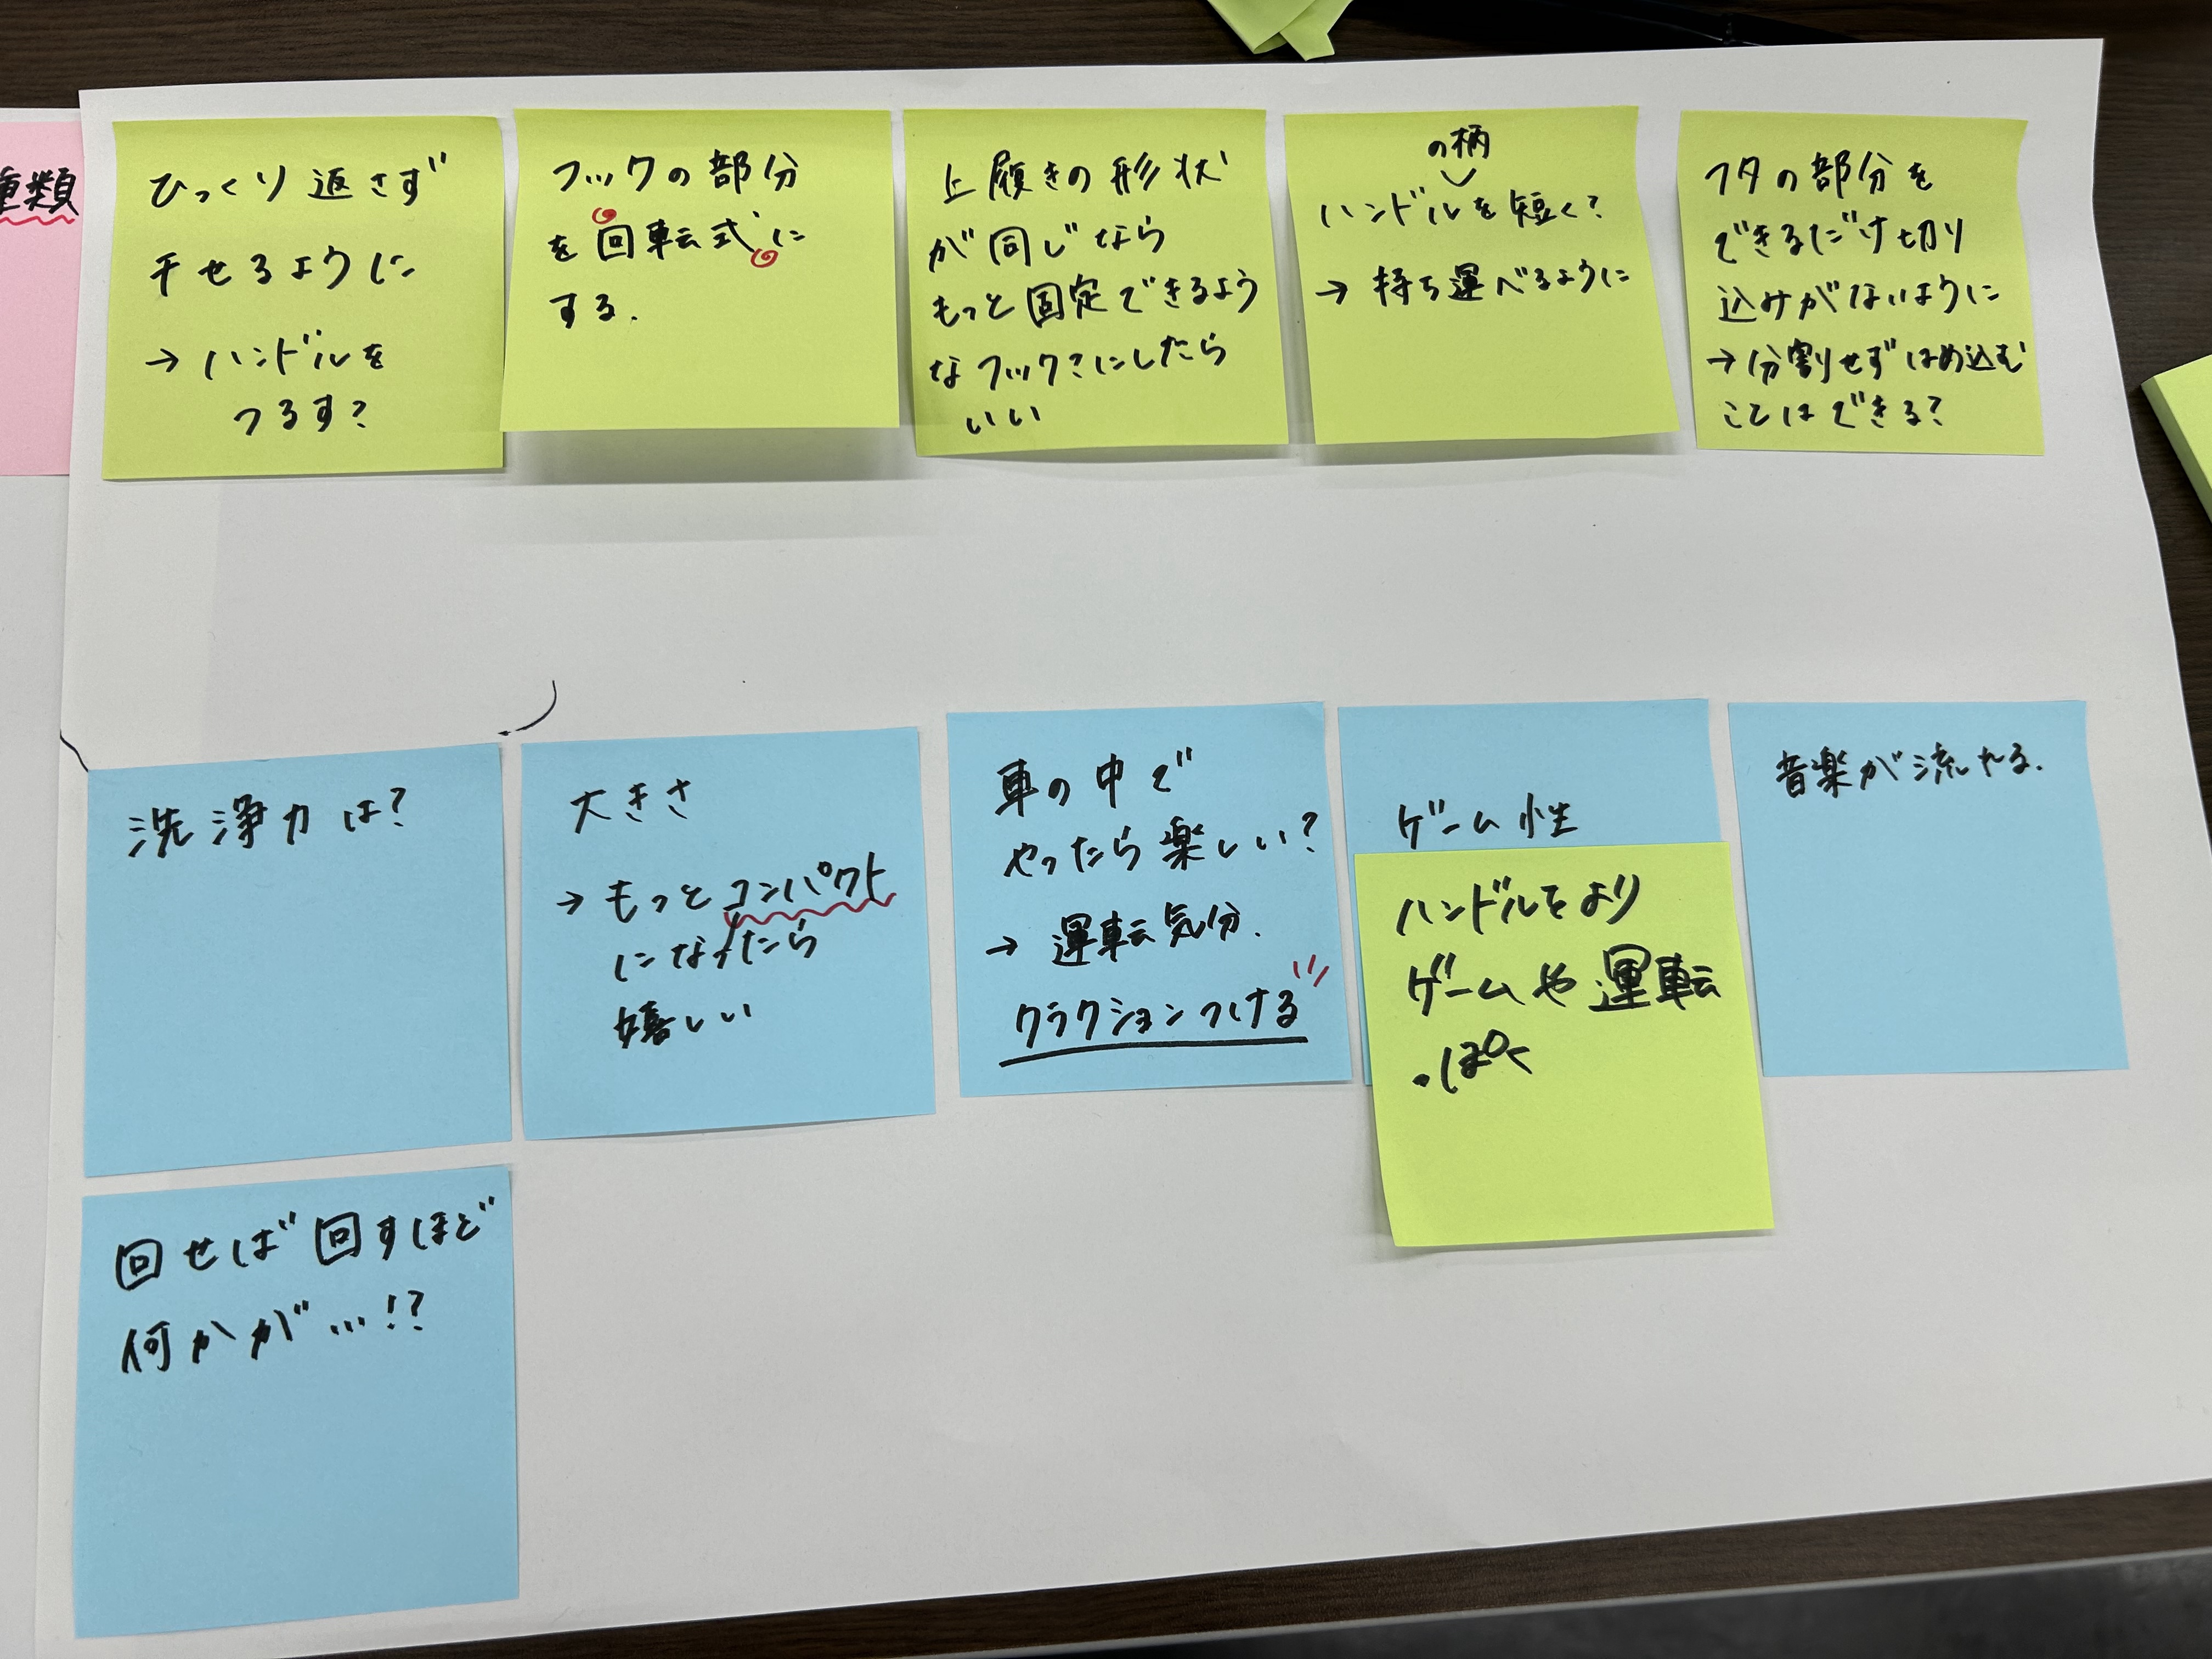 種類
ひっくり返さず
干せるように
→ ハンドルを
つるす?
フックの部分
を回転式に
する.
上履きの形状
が同じなら
もっと固定できるよう
なフック?にしたら
いい
の柄
ハンドルを短く?
→ 持ち運べるように
フタの部分を
できるだけ切り
込みがないように
→分割せずはめ込む
ことはできる?
洗浄力は?
大きさ
→ もっとコンパクト
になったら
嬉しい
車の中で
やったら楽しい?
→ 運転気分.
クラクションつける
ゲーム性
ハンドルをより
ゲームや運転
っぽく
音楽が流れる.
回せば回すほど
何かが…!?